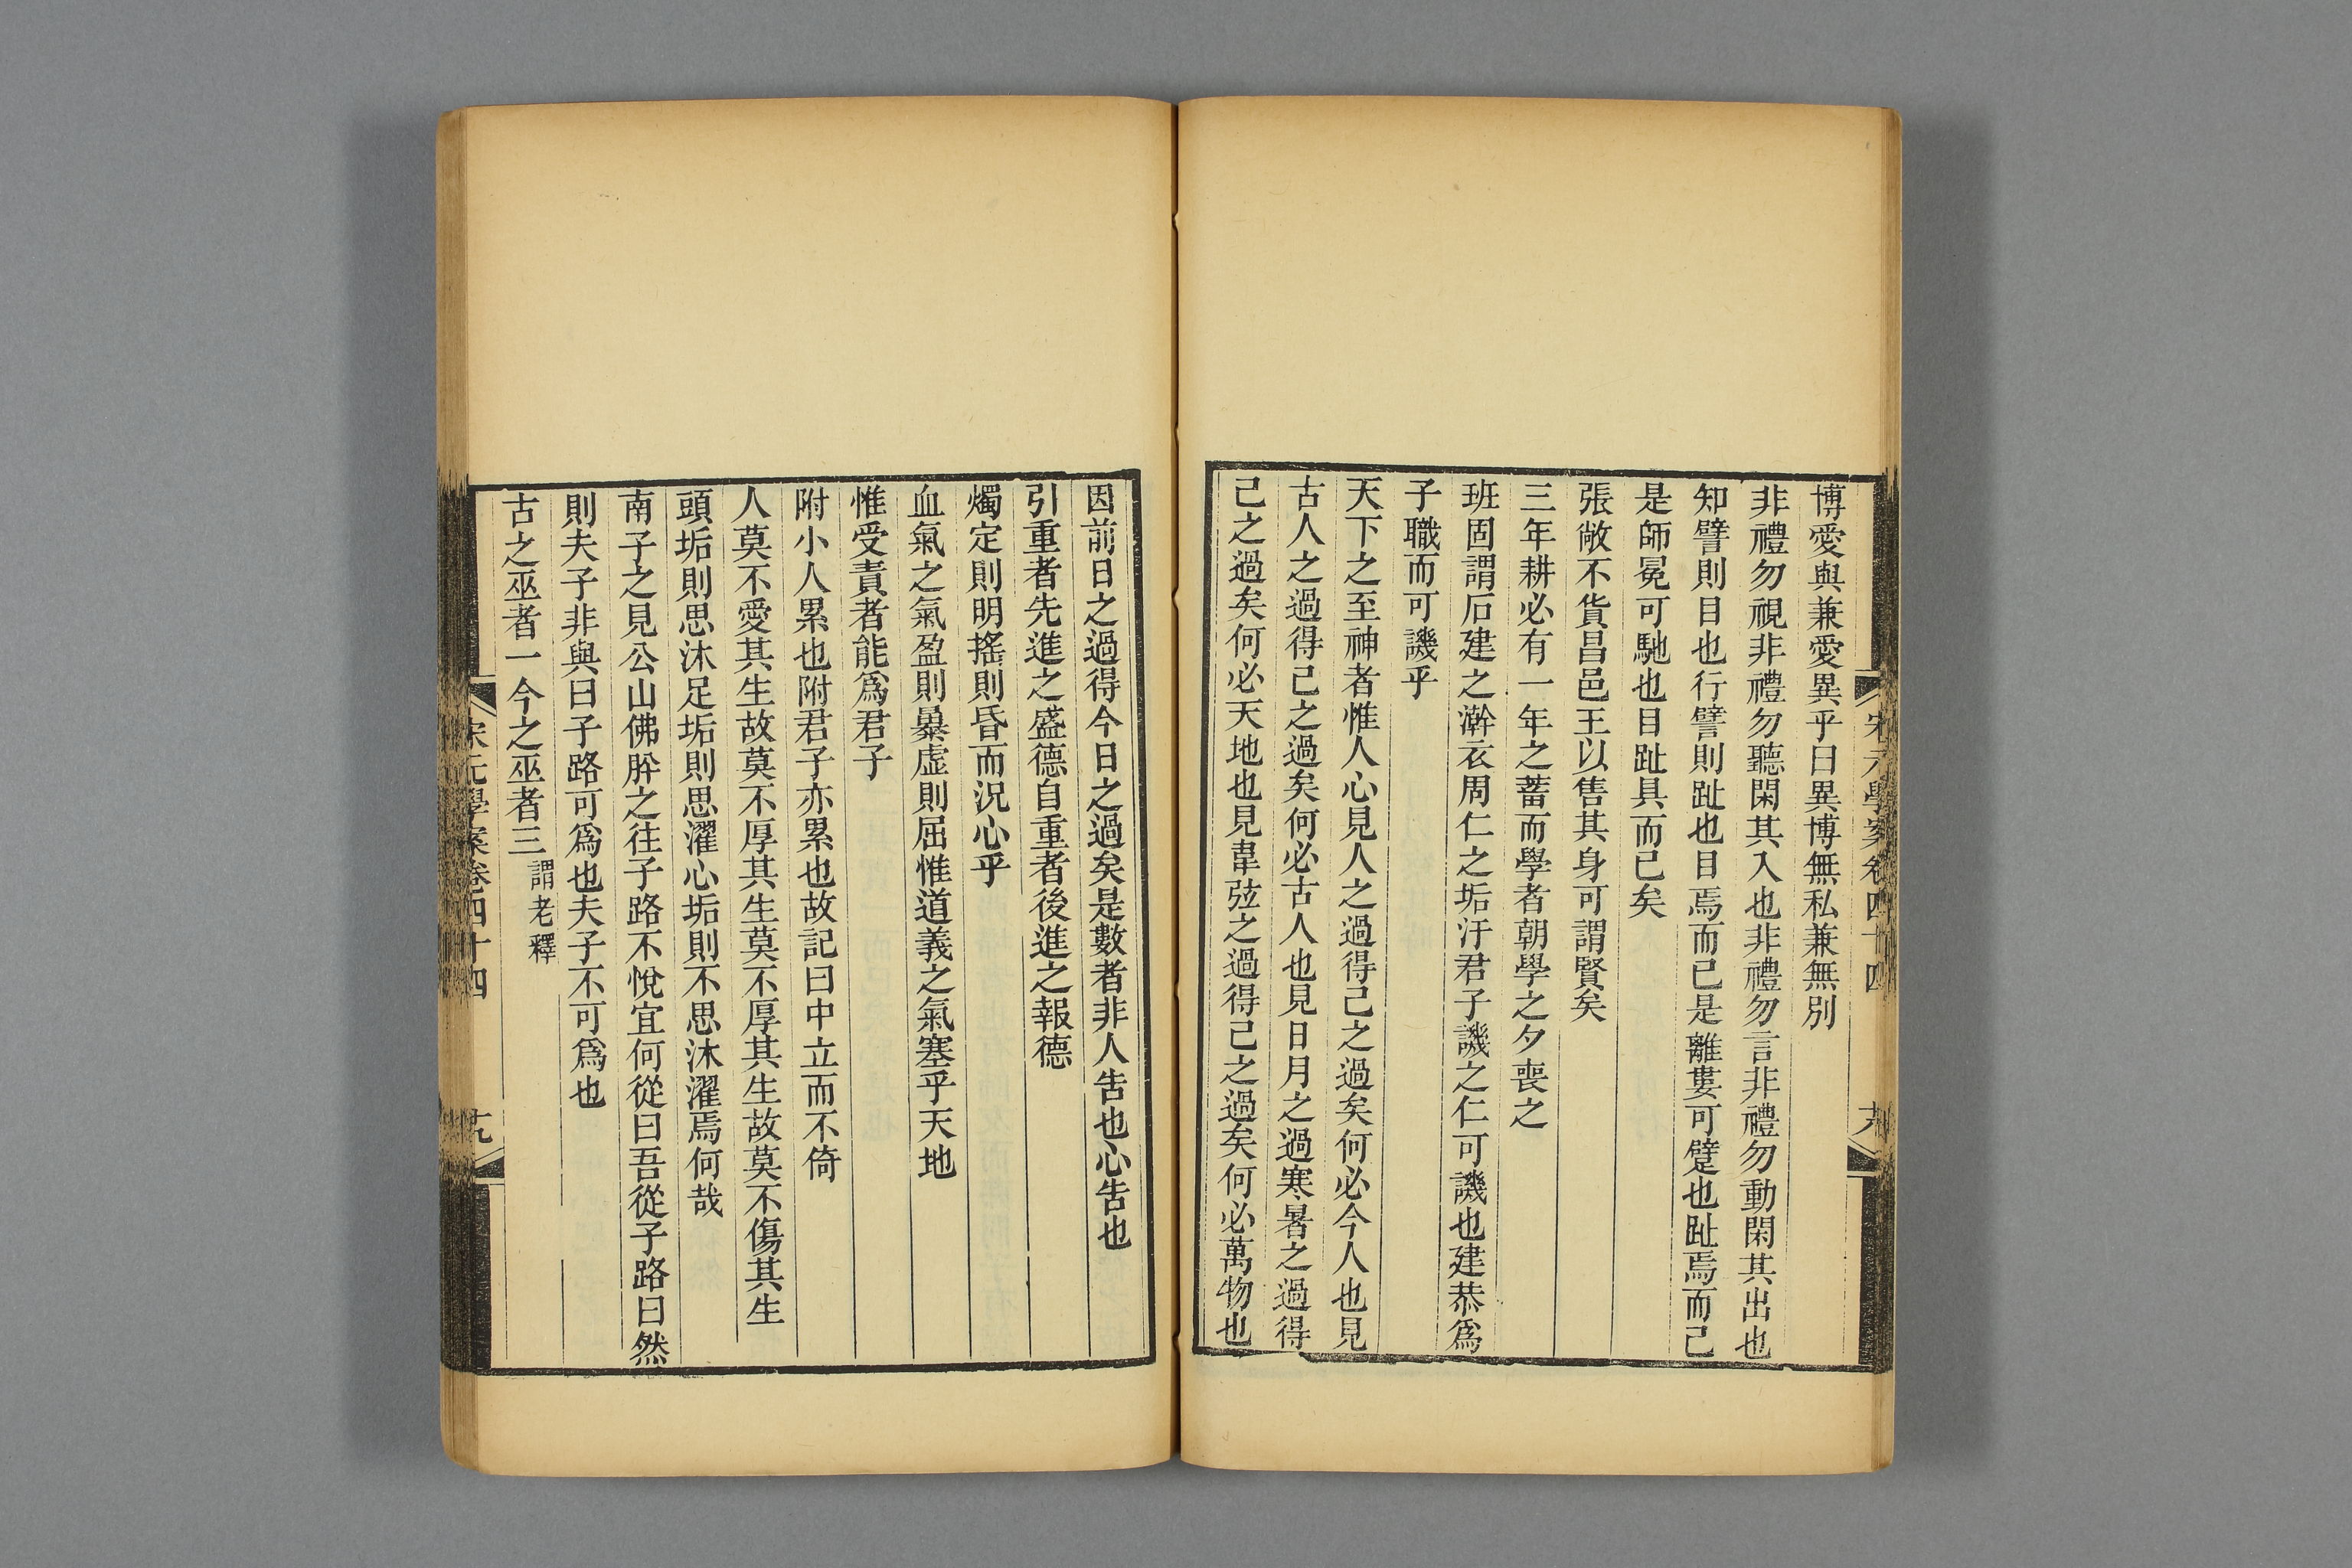 宋元學案卷四十四
博愛與兼愛異乎曰異博無私兼無別
非禮勿視非禮勿聽閑其入也非禮勿言非禮勿動閑其出也
知譬則目也行譬則趾也目焉而已是離婁可躄也趾焉而已
是師冕可馳也目趾具而已矣
張敞不貨昌邑王以售其身可謂賢矣
三年耕必有一年之蓄而學者朝學之夕喪之
班固謂石建之澣衣周仁之垢汙君子譏之仁可譏也建恭爲
子職而可譏乎
天下之至神者惟人心見人之過得己之過矣何必今人也見
古人之過得己之過矣何必古人也見日月之過寒暑之過得
己之過矣何必天地也見韋弦之過得己之過矣何必萬物也
因前日之過得今日之過矣是數者非人告也心告也
引重者先進之盛德自重者後進之報德
燭定則明搖則昏而況心乎
血氣之氣盈則暴虛則屈惟道義之氣塞乎天地
惟受責者能爲君子
附小人累也附君子亦累也故記曰中立而不倚
人莫不愛其生故莫不厚其生莫不厚其生故莫不傷其生
頭垢則思沐足垢則思濯心垢則不思沐濯焉何哉
南子之見公山佛肸之往子路不悅宜何從曰吾從子路曰然
則夫子非與曰子路可爲也夫子不可爲也
古之巫者一今之巫者三謂老釋
宋元學案卷四十四